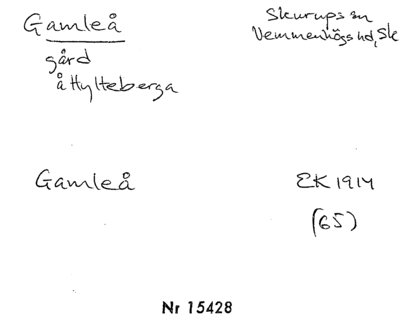 Gamleå
gård
å Hylteberga
Skurups sn
Vemmenhögs hd, Sk
Gamleå
EK 1914
(65)
Nr 15428